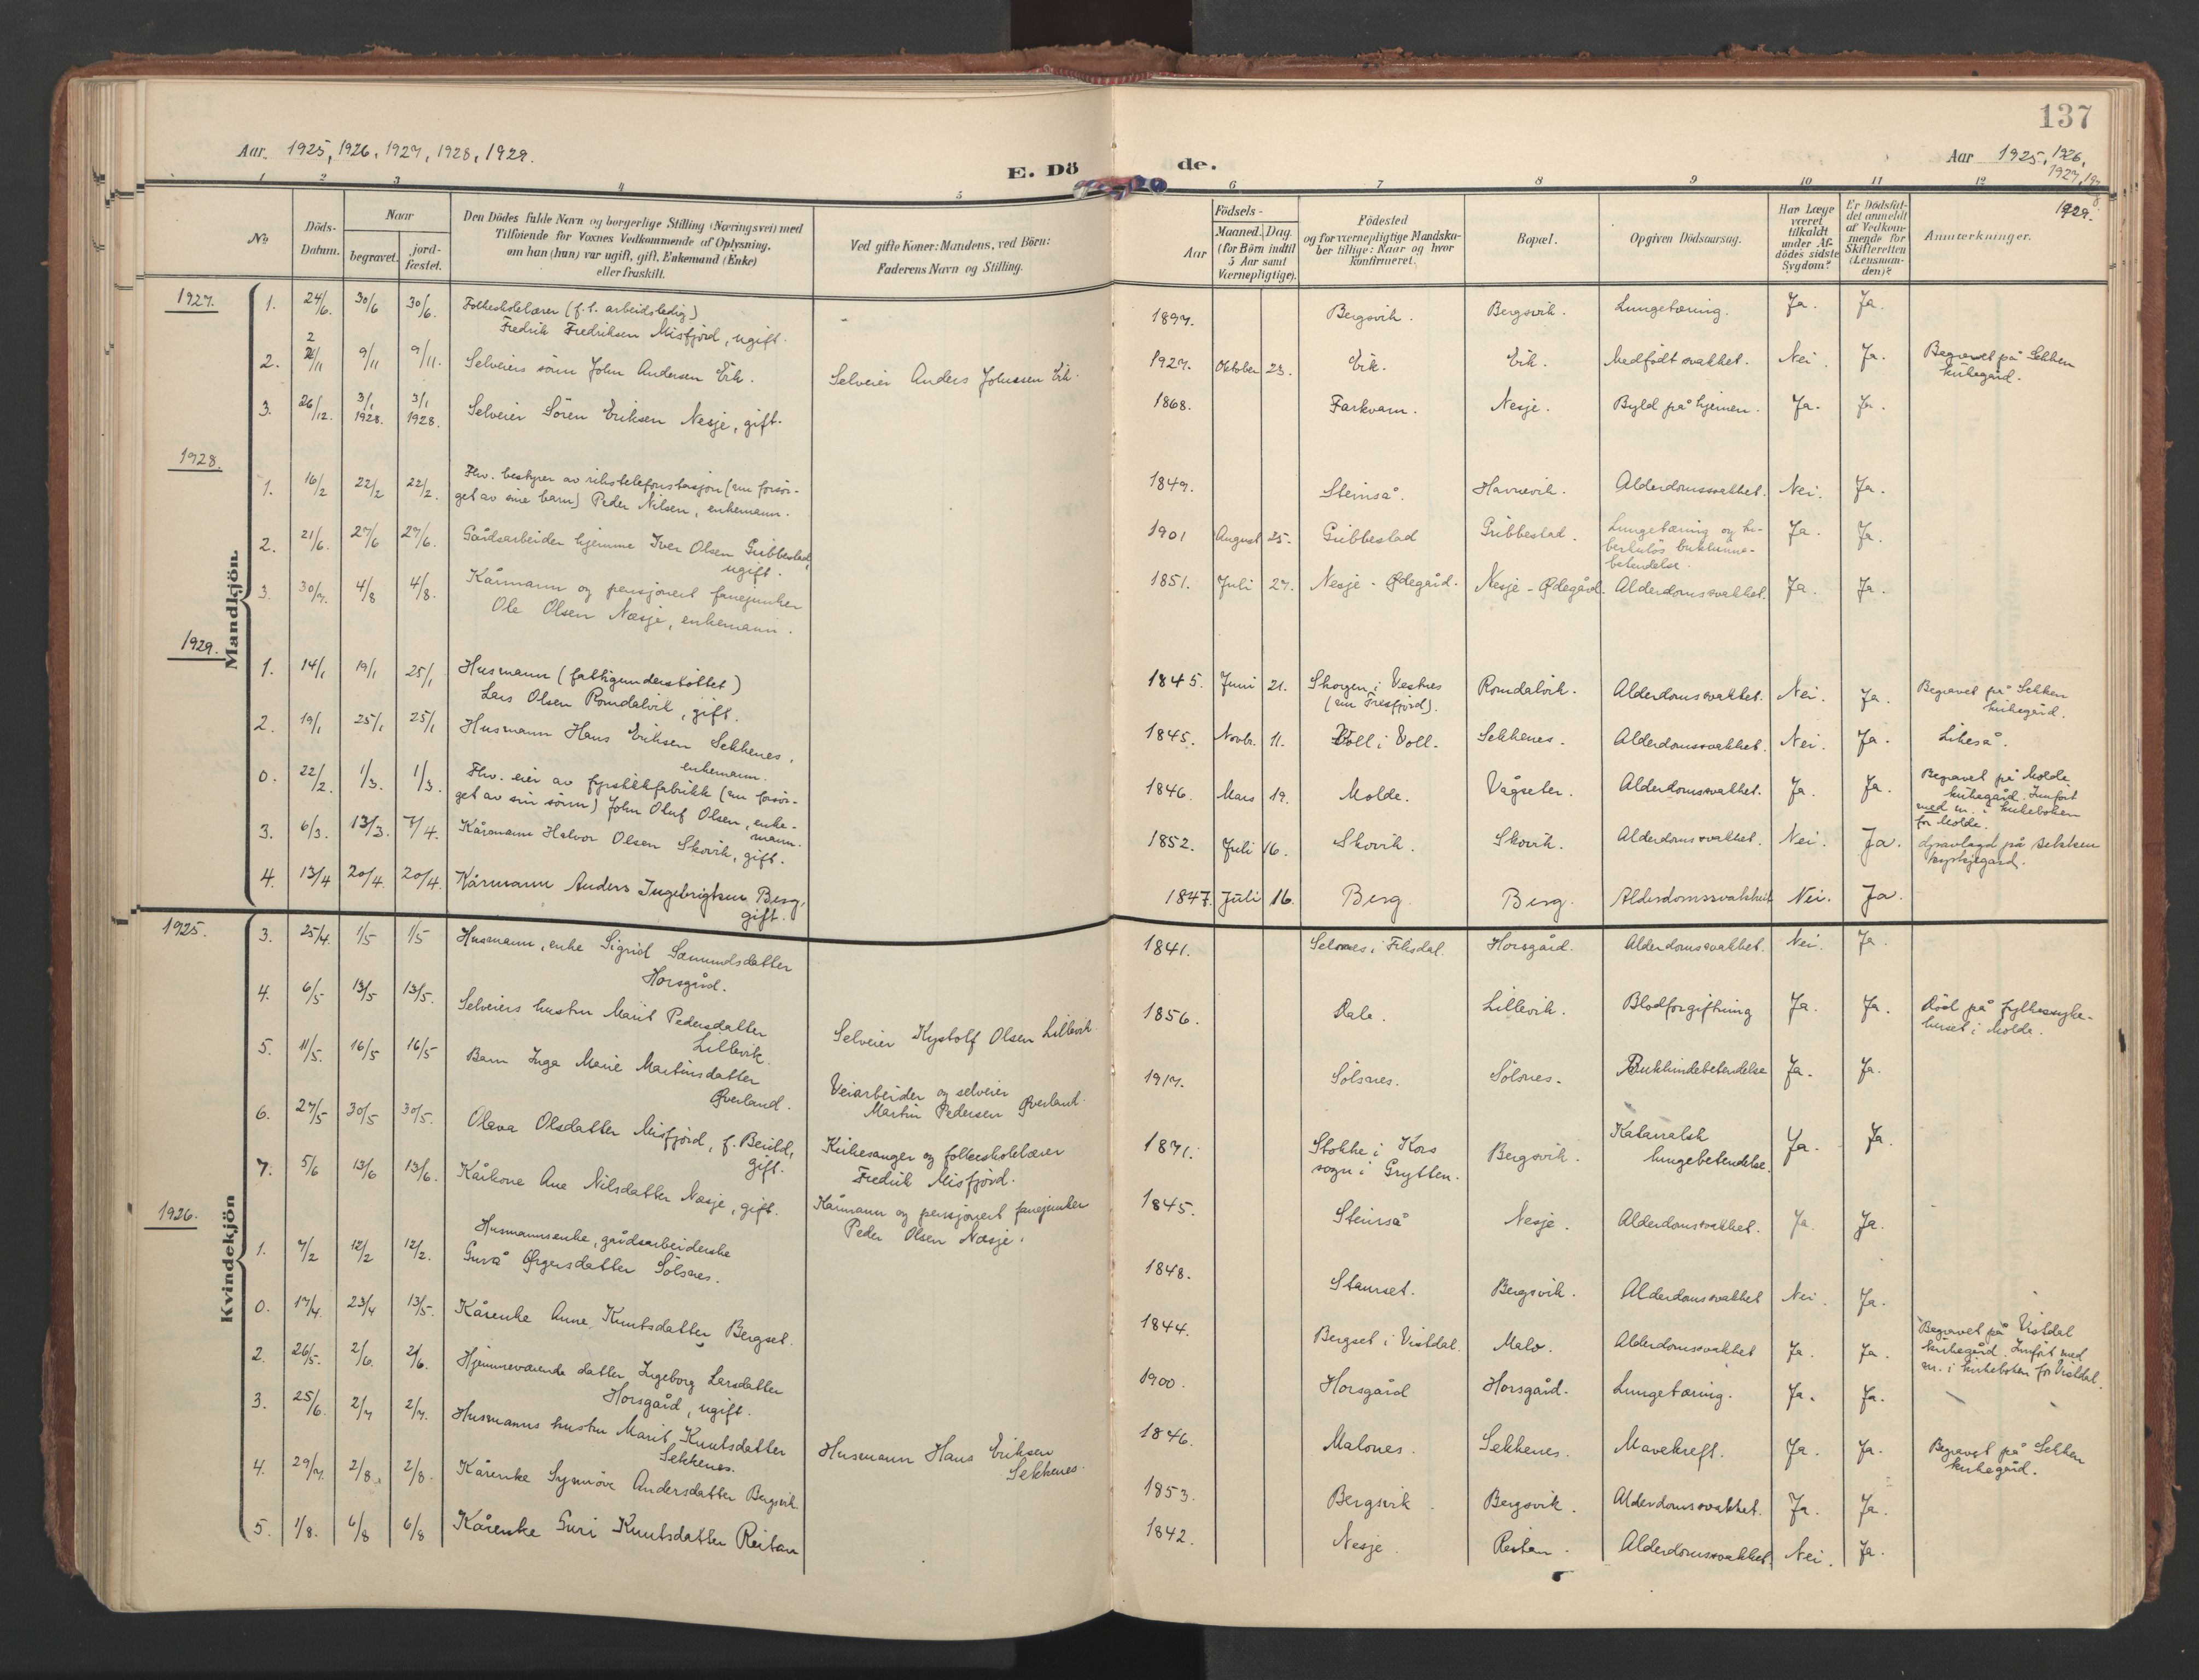 137
Aar. 1925, 1926, 1927, 1928, 1929.
E. Dö de.
Aar 1925, 1926,
1927, 1928
1929.
1 2 3 4 5 6 7 8 9 10 11 12
No.
Döds-
Datum.
Naar
begravet.
jord-
fæstet.
Den Dödes fulde Navn og borgerlige Stilling (Næringsvei) med
Tilföiende for Voxnes Vedkommende af Oplysning,
om han (hun) var ugift, gift, Enkemand (Enke)
eller fraskilt.
Ved gifte Koner: Mandens, ved Börn:
Faderens Navn og Stilling.
Aar
Födsels-
Maaned. Dag.
(for Börn indtil
5 Aar samt
Værnepligtige).
Födested
og for værnepligtige Mandska-
ber tillige: Naar og hvor
konfirmeret.
Bopæl.
Opgiven Dödsaarsag.
Har Læge
været
tilkaldt
under Af-
dödes sidste
Sygdom?
Er Dödsfal-
det anmeldt
af Vedkom-
mende for
Skifteretten
(Lensman-
den)?
Anmærkninger.
Mandkjön.
1927.
1. 24/6. 30/6 30/6. Folkeskolelærer (f. t. arbeidsledig)
Fredrik Fredriksen Misfjord, ugift. 1897. Bergsvik. Bergsvik. Lungetæring. Ja. Ja.
2. 2/11 9/11 9/11. Selveiers sönn John Andersen Eik. Selveier Anders Johnssen Eik. 1927. Oktober 23. Eik. Eik. Medfödt svakhet. Nei. Ja. Begravet på Sekken
kirkegård.
3. 26/12. 3/1 1928. 3/1 1928. Selveier Sören Eriksen Nesje, gift. 1868. Farkvam. Nesje. Byld på hjernen. Ja. Ja.
1928.
1. 16/2 22/2 22/2. Fhv. bestyrer av rikstelefonstasjon (nu forsör-
get av sine barn) Peder Nilsen, enkemann. 1849. Steinså. Havnevik. Alderdomssvakhet. Nei. Ja.
2. 21/6. 27/6 27/6. Gårdsarbeider hjemme Iver Olsen Gribbestad,
ugift. 1901 August 25. Gribbestad Gribbestad. Lungetæring og tu-
berkulös bukhinne-
betendelse. Ja. Ja.
3. 30/7. 4/8 4/8. Kårmann og pensjonert fanejunker
Ole Olsen Næsje, enkemann. 1851. Juli 27. Nesje - Ødegård. Nesje - Ødegård. Alderdomssvakhet. Ja. Ja.
1929.
1. 14/1 19/1 25/1 Husmann (fattigunderstöttet)
Lars Olsen Romdalvik, gift. 1845. Juni 21. Skogen i Vestnes
(nu Tresfjord). Romdalvik. Alderdomssvakhet. Nei. Ja. Begravet på Sekken
kirkegård.
2. 19/1 25/1 25/1 Husmann Hans Eriksen Sekkenes,
enkemann. 1845. Novbr. 11. Voll i Voll. Sekkenes. Alderdomssvakhet. Nei. Ja. Likeså.
0. 22/2. 1/3. 1/3. Fhv. eier av fyrstikkfabrikk (nu forsör-
get av sin sönn) John Oluf Olsen, enke-
mann. 1846. Mars 19. Molde. Vågseter. Alderdomssvakhet. Ja. Ja. Begravet på Molde
kirkegård. Innfört
med nr. i kirkeboken
for Molde.
3. 6/3. 13/3. 7/4. Kårmann Halvor Olsen Skovik, gift. 1852. Juli 16. Skovik. Skovik. Alderdomssvakhet. Nei. Ja. på Sekken
kyrkjegard.
4. 13/4 20/4. 20/4. Kårmann Anders Ingebrigtsen Berg,
gift. 1847. Juli 16. Berg. Berg. Alderdomssvakheit Nei. Ja.
Kvindekjön
1925.
3. 25/4. 1/5 1/5 Husmann, enke Sigrid Sæmundsdatter
Horsgård. 1841. Selnes i Fiksdal. Horsgård. Alderdomssvakhet. Nei. Ja.
4. 6/5 13/5 13/5. Selveiers hustru Marit Pedersdatter
Lillevik. Selveier Kystolf Olsen Lillevik. 1856. Dale. Lillevik. Blodforgiftning Ja. Ja. Död på fylkessyke-
huset i Molde.
5. 11/5. 16/5 16/5 Barn Inga Marie Martinsdatter
Øverland. Veiarbeider og selveier
Martin Pedersen Øverland. 1917. Sölsnes. Sölsnes. Bukhindebetendelse Ja. Ja.
6. 27/5 30/5 30/5. Olava Olsdatter Misfjord, f. Beiild,
gift. Kirkesanger og folkeskolelærer
Fredrik Misfjord. 1871. Stokke i Kors
sogn i Grytten. Bergsvik. Katarralsk
lungebetendelse. Ja. Ja.
7. 5/6 13/6 13/6. Kårkone Ane Nilsdatter Næsje, gift. Kårmann og pensjonert fanejunker
Peder Olsen Næsje. 1845. Steinså Nesje. Alderdomssvakhet. Ja. Ja.
1926.
1. 7/2 12/2 12/2. Husmannsenke, gårdsarbeiderske
Gurå Ørgersdatter Sölsnes. 1848. Staurset. Bergsvik. Alderdomssvakhet Nei. Ja.
0. 17/4. 23/4 13/5. Kårenke Anne Knutsdatter Bergset. 1844. Bergset i Vistdal. Malo. Alderdomssvakhet Ja. Ja. Begravet på Vistdal
kirkegård. Innfört med
nr. i kirkeboken for Vistdal.
2. 26/5. 2/6. 2/6. Hjemmeværende datter Ingeborg Larsdatter
Horsgård, ugift. 1900. Horsgård Horsgård. Lungetæring. Ja. Ja.
3. 25/6. 2/7 2/7. Husmanns hustru Marit Knutsdatter
Sekkenes. Husmann Hans Eriksen
Sekkenes. 1846. Malones. Sekkenes. Mavekreft. Ja. Ja. Begravet på Sekken
kirkegård.
4. 29/7. 2/8. 2/8. Kårenke Synnöve Andersdatter Bergsvik. 1853. Bergsvik. Bergsvik. Alderdomssvakhet. Ja. Ja.
5. 1/8. 6/8 6/8 Kårenke Guri Knutsdatter Reitan 1842. Nesje. Reitan. Alderdomssvakhet. Nei. Ja.